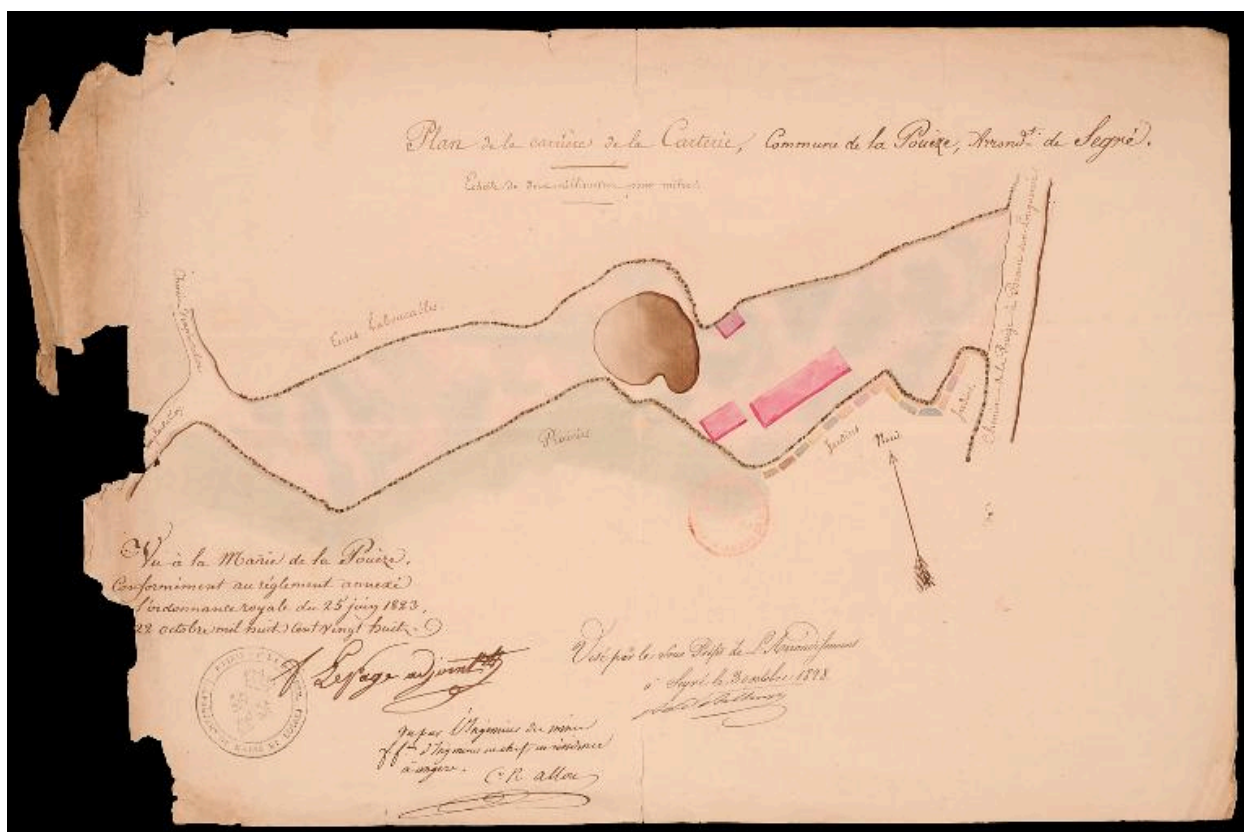 Plan de la carrière de la Carterie, Commune de la Pouëze, Arrond.t de Segré.
Echelle de deux millimètres pour mètre.
Terres Labourables.
Chemin
Prairie
Jardins
Jardin
Nord
Chemin de la Pouëze à
Vu à la Mairie de la Pouëze,
Conformément au réglement annexé
l'ordonnance royale du 25 juin 1823,
22 octobre mil huit cent vingt huit.
Lepage adjoint
Visé par le Sous Préfet de L'Arrondissement
à Segré le 3 octobre 1828
Vu par l'Ingénieur des mines
ff.on d'Ingénieur en chef, en résidence
à angers.
C. R. allou